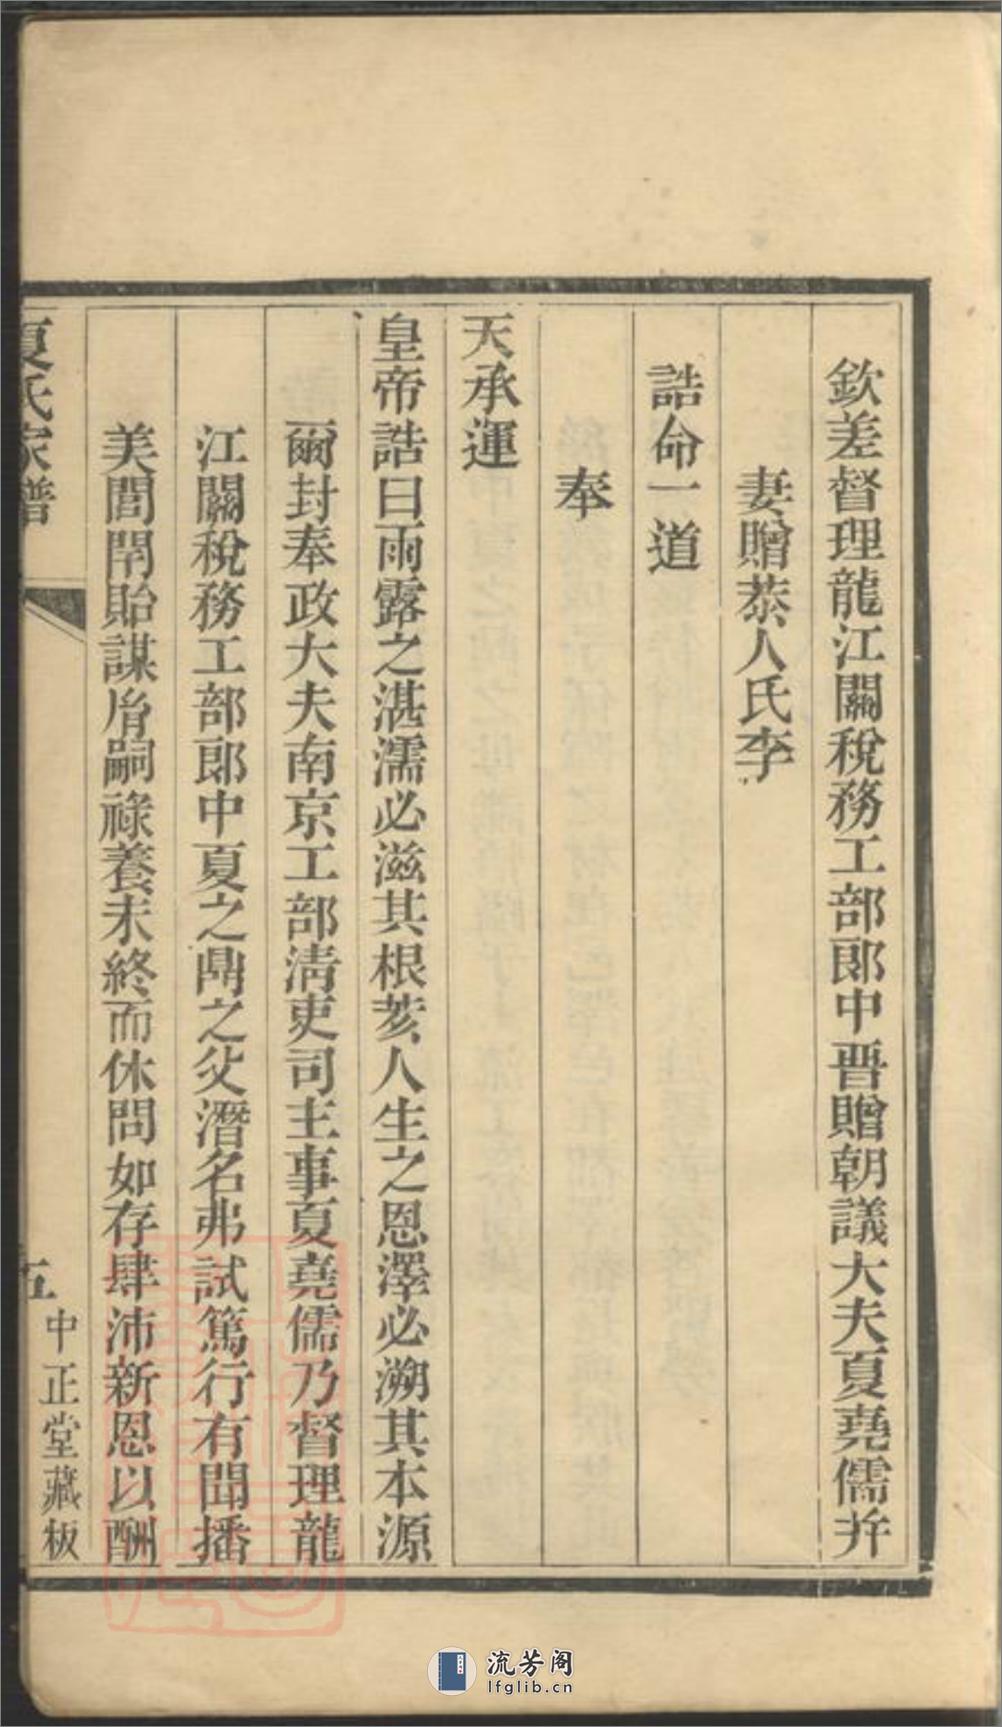 欽差督理龍江關稅務工部郎中晋贈朝議大夫夏堯儒并
妻贈恭人氏李
誥命一道
奉
天承運
皇帝誥曰雨露之湛濡必滋其根荄人生之恩澤必溯其本源
爾封奉政大夫南京工部清吏司主事夏堯儒乃督理龍
江關稅務工部郎中夏之鼎之父潛名弗試篤行有聞播
美閭閈貽謀胤嗣祿養未終而休問如存肆沛新恩以酬
夏氏家譜
五
中正堂藏板
流芳阁
lfglib.cn